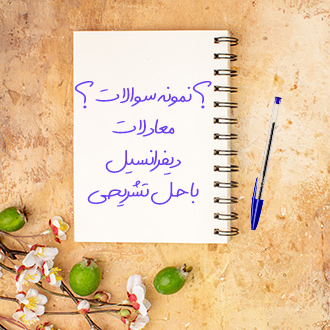 ؟ نمونه سوالات ؟
معادلات
دیفرانسیل
با حل تشریحی